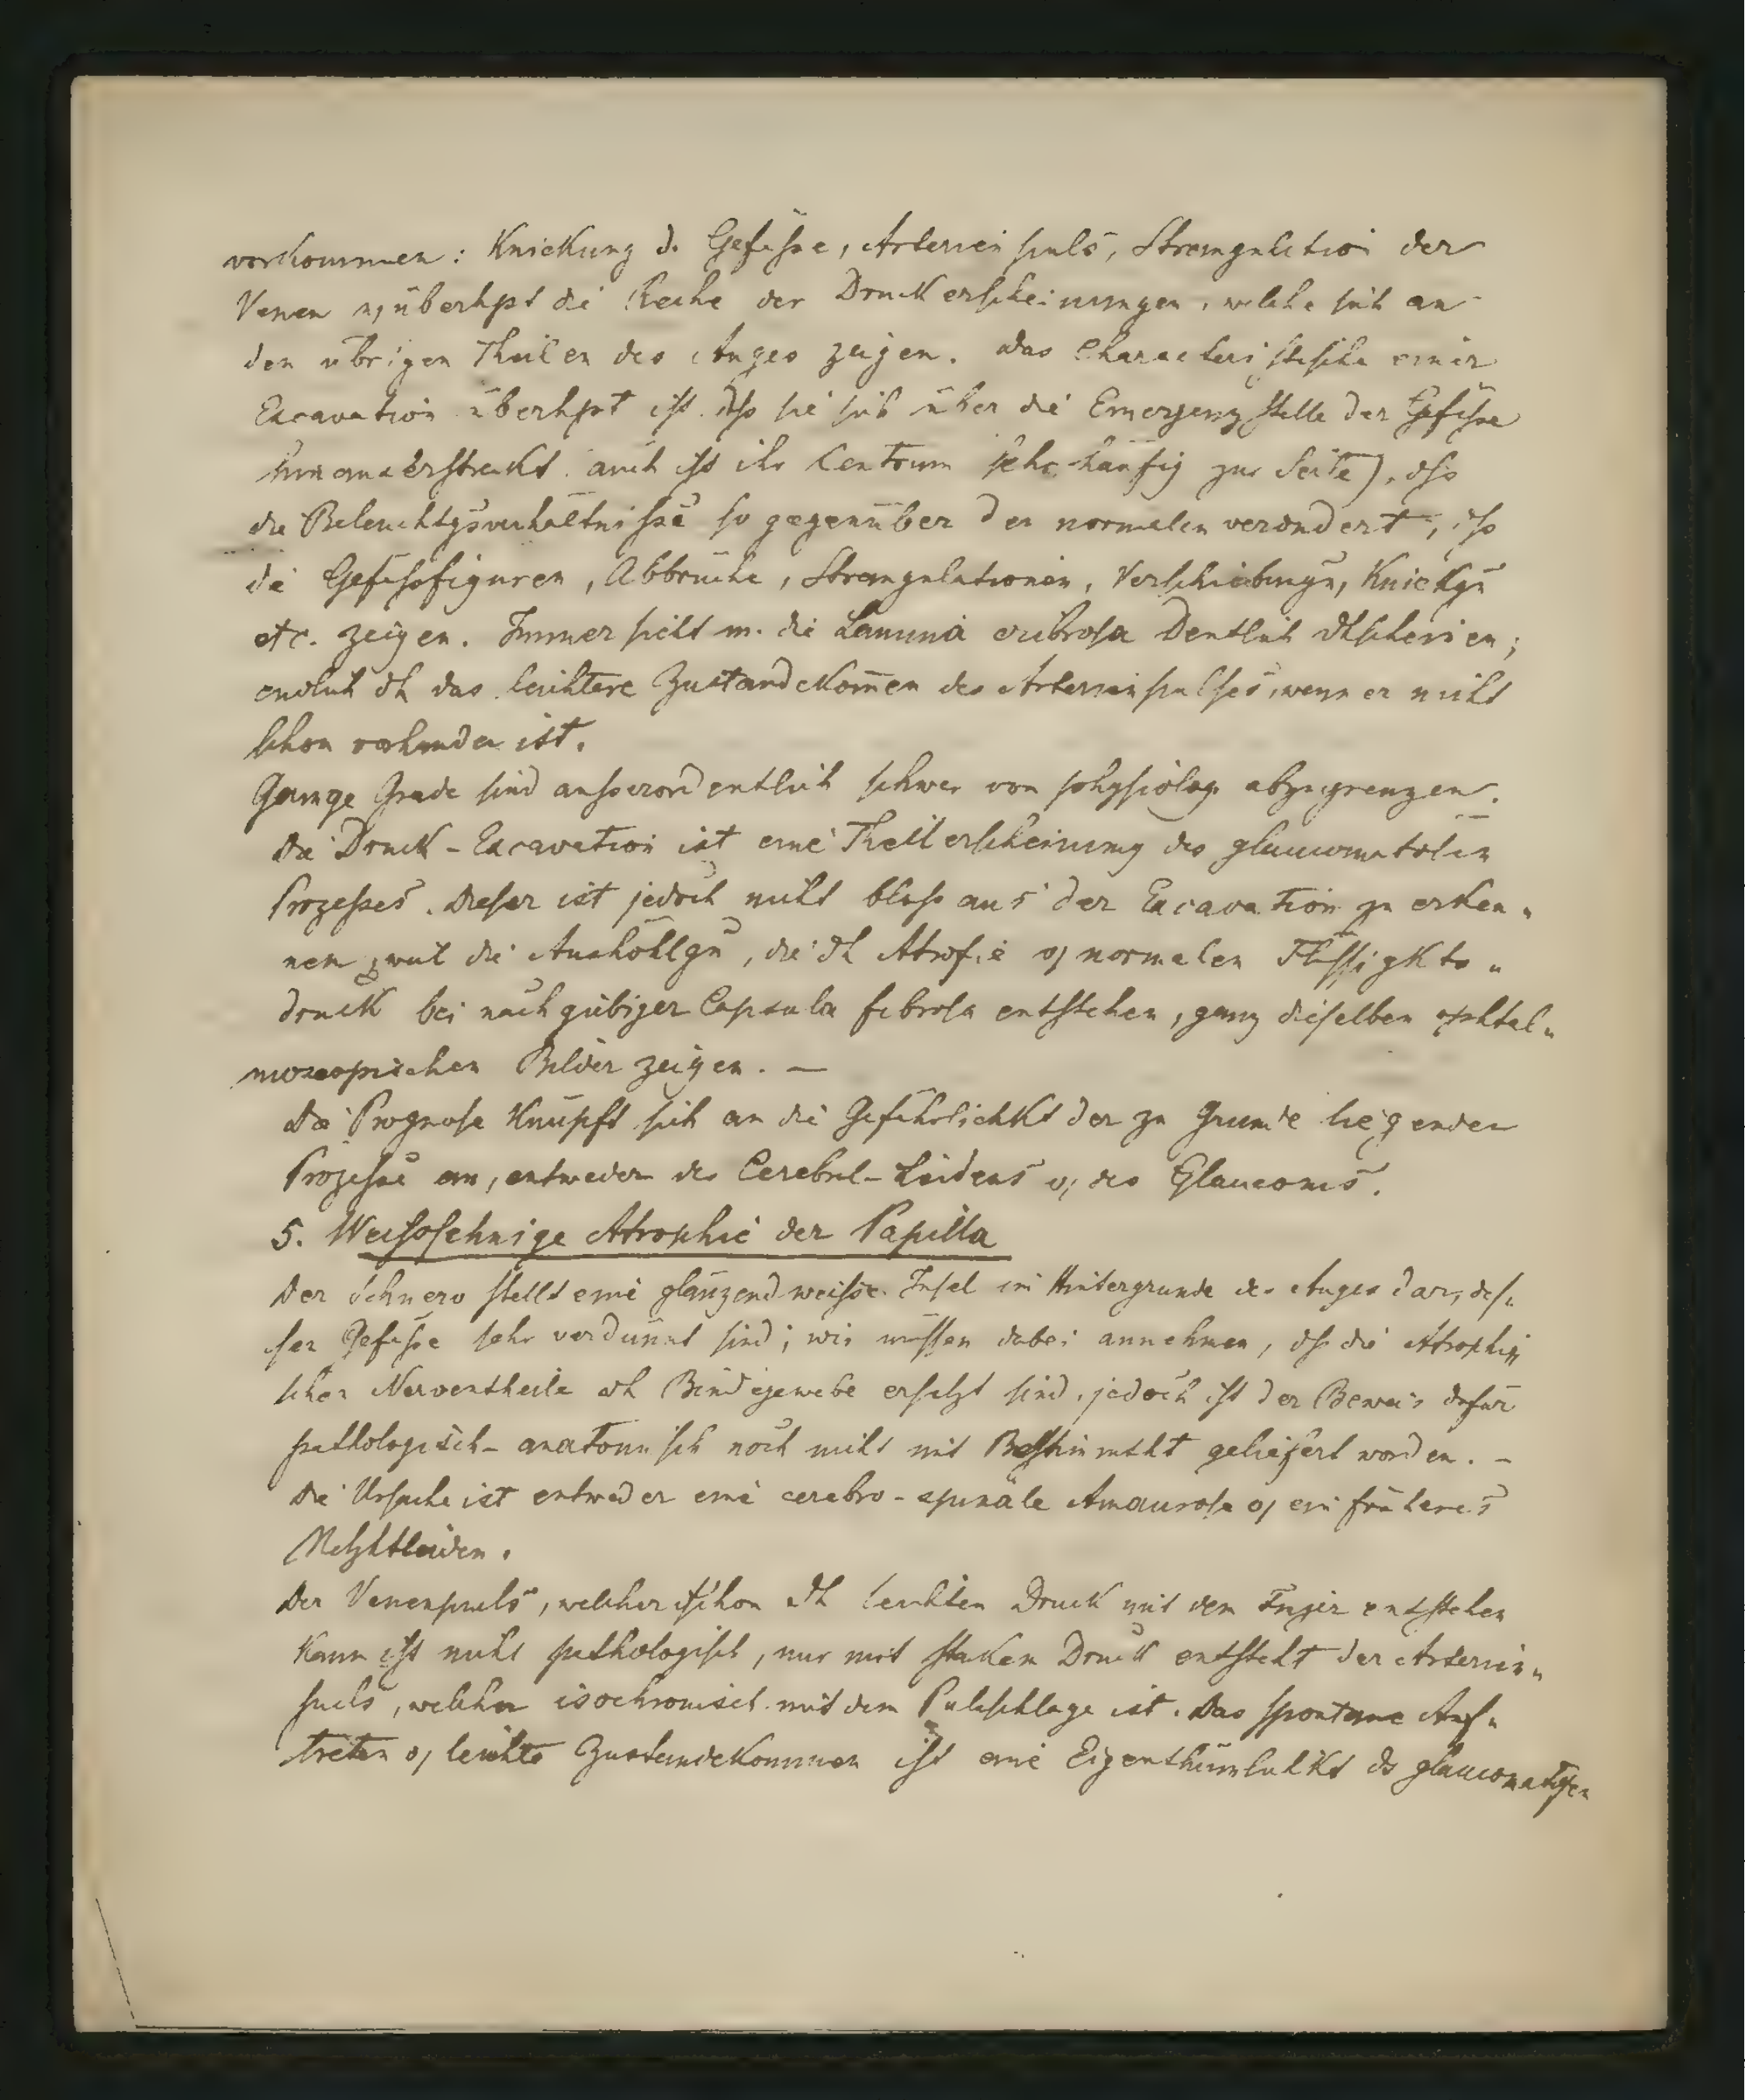 vorkommen: Knickung d. Gefässe, Arterienpuls, Strangulation der
Venen u, überhpt die Reihe der Druckerscheinungen, welche sich an
den übrigen Theilen des Auges zeigen. Das Characteristische einer
Excavation überhpt ist, dss sie sich über die Emergenzstelle der Gefässe
hinauserstreckt auch ist ihr Centrum sehr häufig zur Seite), dss
die Beleuchtgsverhältnisse so gegenüber den normalen verändert, dss
die Gefässfiguren, Abbrüche, Strangulationen, Verschiebungn, Knickgn
etc. zeigen. Immer sieht m. die Lamina cribrosa deutlich dhscheinen;
endlich dh das leichtere Zustandekom̄en des Arterienpulses, wenn er nicht
schon vorhanden ist.
Geringe Grade sind ausserordentlich schwer von physiolog. abzugrenzen.
Die Druck-Excavation ist eine Theilerscheinung des glaucomatösen
Prozesses. Dieser ist jedoch nicht bloss aus der Excavation zu erken„
nen, weil die Aushöhlgn, die dh Atrofie o, normalen Flüssigkts„
druck bei nachgiebiger Capsula fibrosa entstehen, ganz dieselben ophtal„
moscopischen Bilder zeigen. —
Die Prognose knüpft sich an die Gefährlichkt der zu Grunde liegenden
Prozesse an, entweder des Cerebral-Leidens o, des Glaucoms.
5. Weisssehnige Atrophie der Papilla
Der Sehnerv stellt eine glänzend weisse Insel im Hintergrunde des Auges dar, des„
sen Gefässe sehr verdünnt sind; wir müssen dabei annehmen, dss die Atrophi
schen Nerventheile dh Bindegewebe ersetzt sind, jedoch ist der Beweis dafür
pathologisch-anatomisch noch nicht mit Bestimmtht geliefert worden. –
Die Ursache ist entweder eine cerebro-spinale Amaurose o, ein früheres
Netzhtleiden.
Der Venenpuls, welcher schon dh leichten Druck mit dem Finger entstehen
kann ist nicht pathologisch, nur mit starkem Druck entsteht der Arterien„
puls, welcher isochronisch mit dem Pulsschlage ist. Das spontane Auf„
treten o, leichte Zustandekommen ist eine Eigenthümlichkt ds glaucomatösen